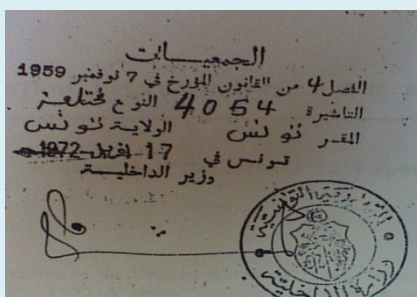 الجمعيـــات
الفصل 4 من القانون المؤرخ في 7 نوفمبر 1959
التاشيرة 4054 النوع مختلفة
المقـر تونس الولاية تونس
تونس في 17 افريل 1972
وزير الداخليـة
الجمهورية التونسية
وزارة الداخلية